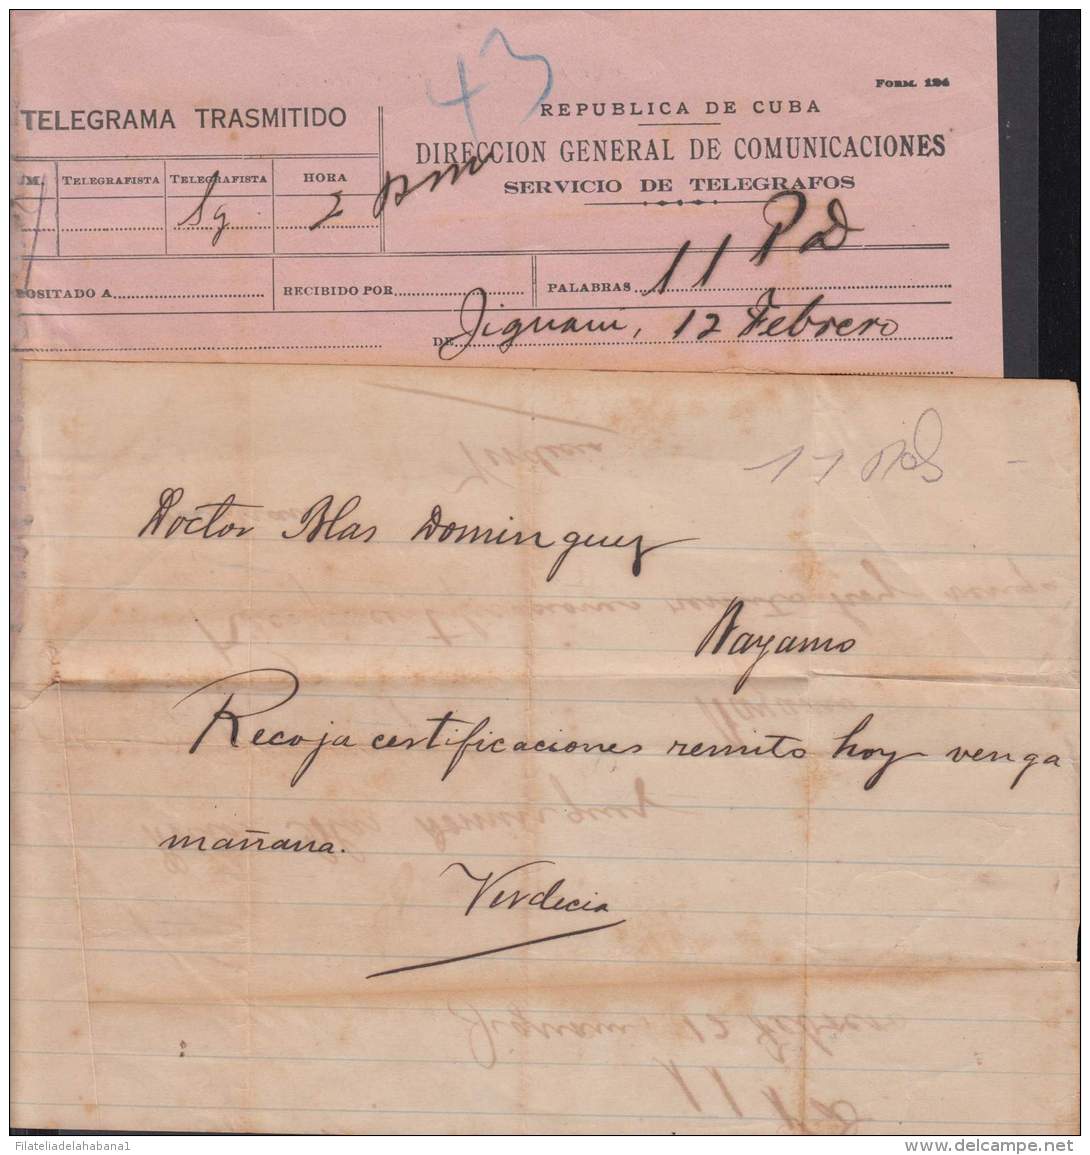 43
FORM. 124
TELEGRAMA TRASMITIDO
REPUBLICA DE CUBA
DIRECCION GENERAL DE COMUNICACIONES
SERVICIO DE TELEGRAFOS
UM. TELEGRAFISTA TELEGRAFISTA HORA
Sg 2 pm
11 Pd
POSITADO A RECIBIDO POR PALABRAS
DE Jiguani, 12 Febrero
11
Doctor Blas Dominguez
Bayamo
Recoja certificaciones remito hoy venga
mañana.
Verdecia
Jiguani, 12 Febrero
11 Pd
Filateliadelahabana1
delcampe.net